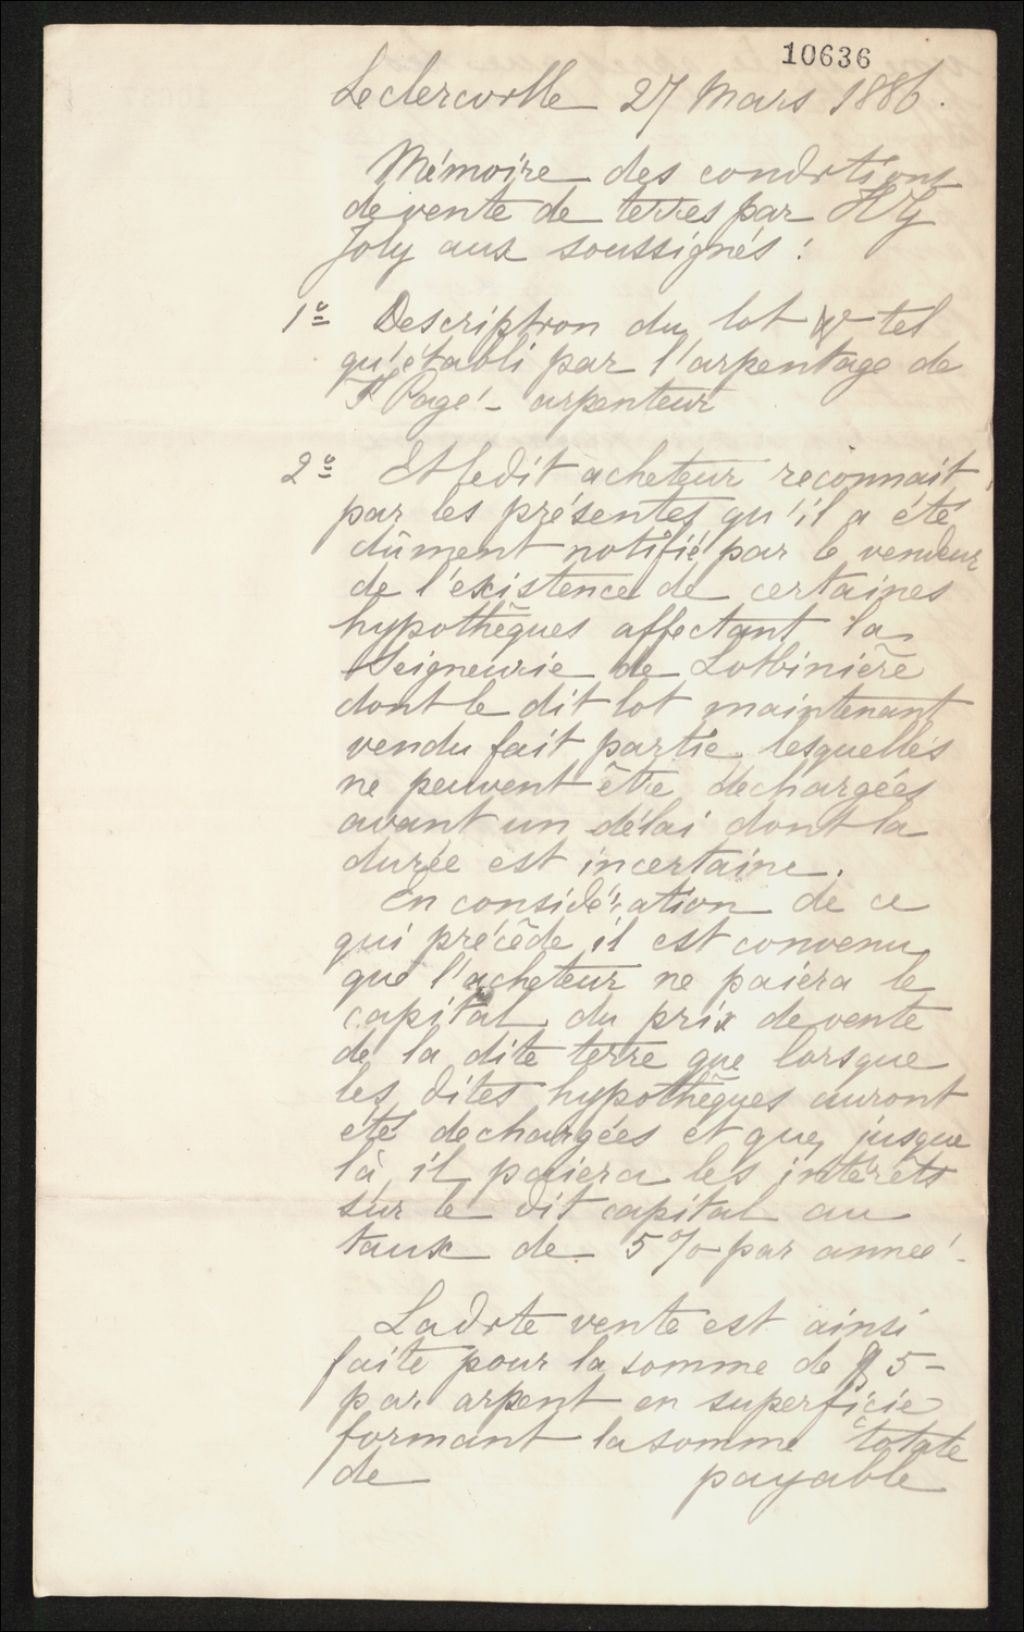 10636
Leclercville 27 Mars 1886.
Mémoire des conditions
de vente de terres par HG
Joly aux soussignés :
1º Description du lot tel
qu'établi par l'arpentage de
Pagé - arpenteur
2º Et ledit acheteur reconnait
par les présentes qu'il a été
dûment notifié par le vendeur
de l'existence de certaines
hypothèques affectant la
Seigneurie de Lotbinière
dont le dit lot maintenant
vendu fait partie. lesquelles
ne peuvent être dechargées
avant un délai dont la
durée est incertaine.
En considération de ce
qui précède il est convenu
que l'acheteur ne paiera le
capital du prix de vente
de la dite terre que lorsque
les dites hypothèques auront
été dechargées et que, jusque
là, il paiera les intérêts
sur le dit capital au
taux de 5% par année -
Ladite vente est ainsi
faite pour la somme de $5 -
par arpent en superficie
formant la somme totale
de payable